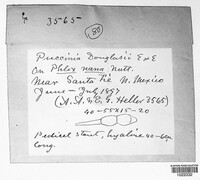 3565
80
Puccinia Douglasii E & E
On Phlox nana Nutt.
Near Santa Fe N. Mexico
June - July 1897
(A. A. & E. G. Heller 3565)
40-55 X 15-20
Pedicel stout, hyaline 40-60µ
long.